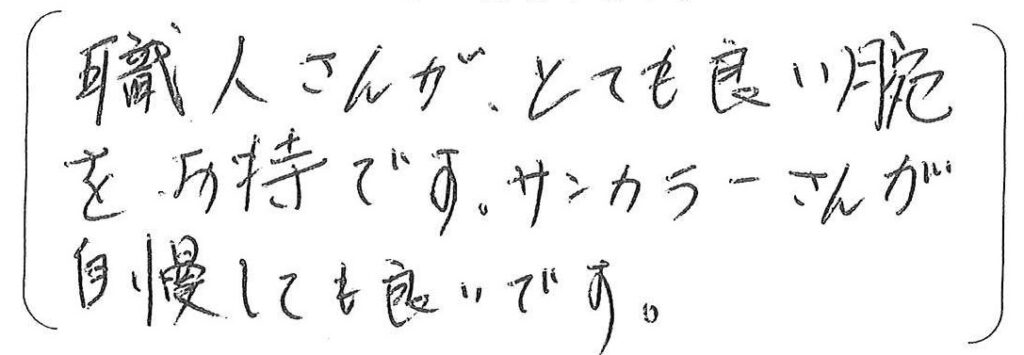 職人さんが、とても良い腕
を所持です。サンカラーさんが
自慢しても良いです。